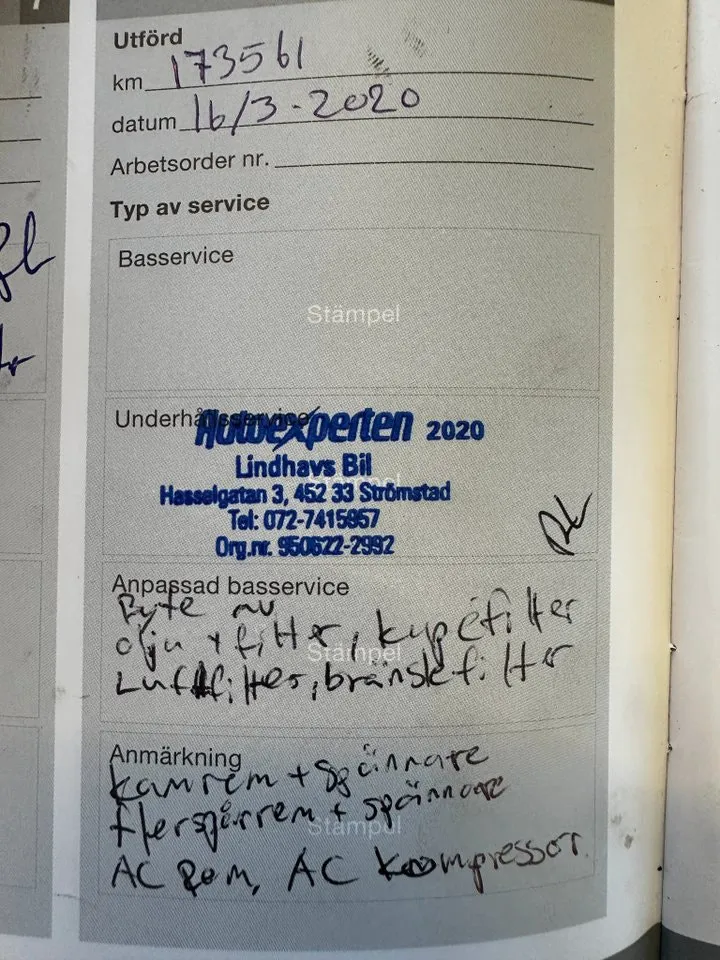 Utförd
km 173561
datum 16/3-2020
Arbetsorder nr.
Typ av service
Basservice
Stämpel
Underhållsservice
Autoexperten 2020
Lindhavs Bil
Hasselgatan 3, 452 33 Strömstad
Tel: 072-7415957
Org.nr. 950622-2992
Anpassad basservice
Byte av
olja + filter, kupéfilter
Stämpel
Luftfilter, bränslefilter
Anmärkning
kamrem + spännare
flerspårrem + spännare
Stämpel
AC Rem, AC kompressor.